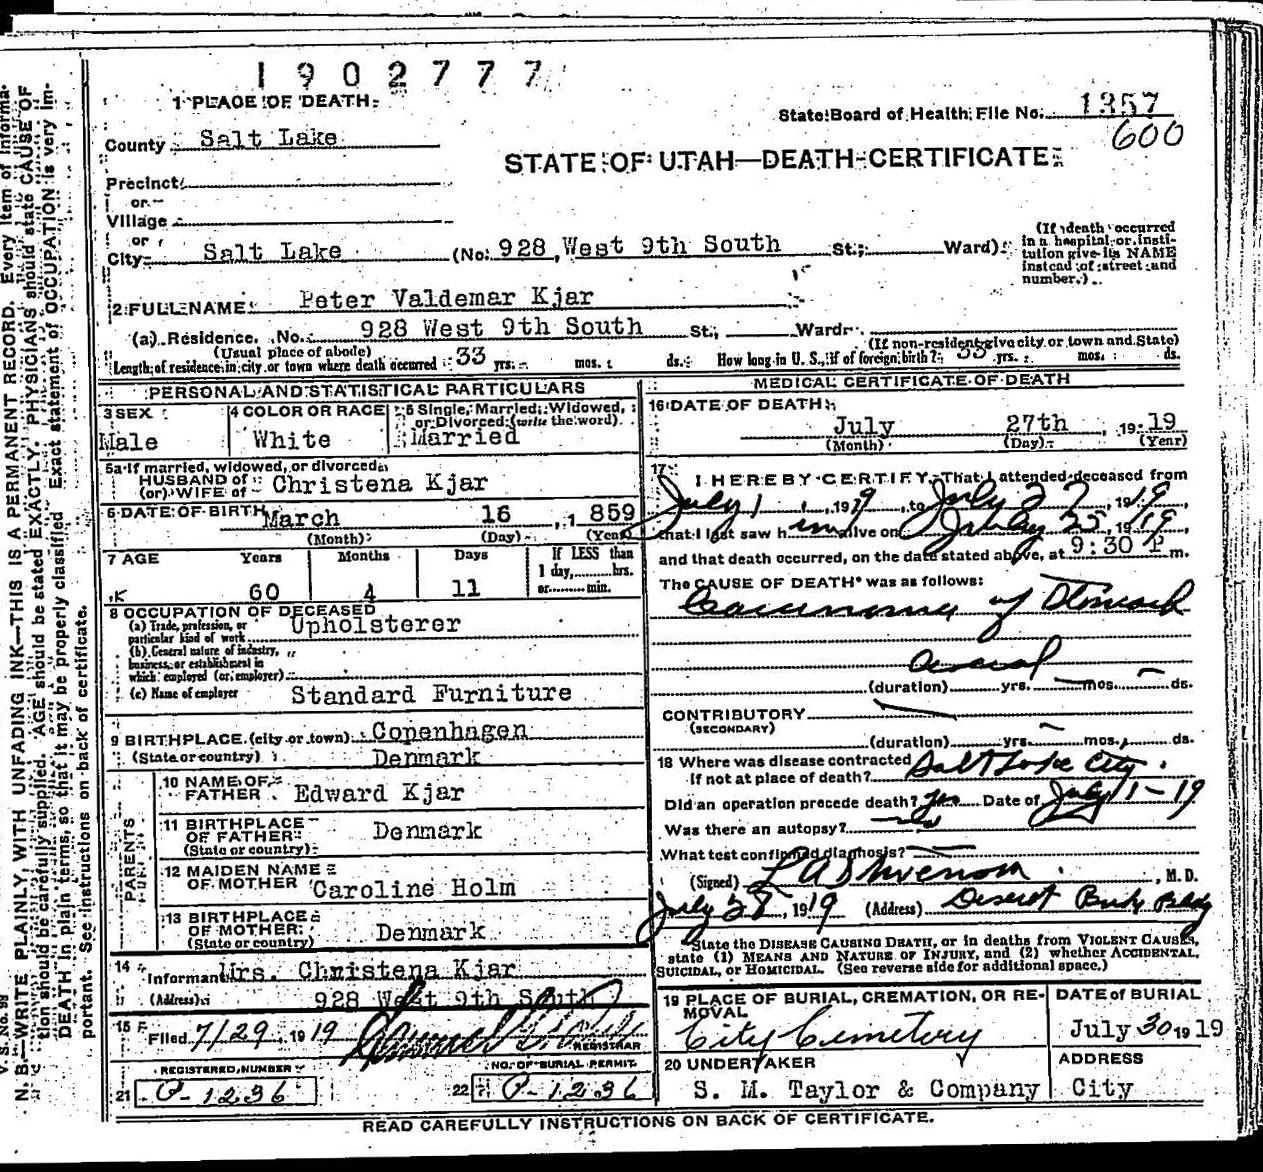 1902777
1 PLACE OF DEATH
State Board of Health File No. 1357
600
County Salt Lake
STATE OF UTAH—DEATH CERTIFICATE
Precinct
or
Village
or
City Salt Lake (No. 928, West 9th South St.; Ward)
(If death occurred in a hospital or institution give its NAME instead of street and number.)
2 FULL NAME Peter Valdemar Kjar
(a) Residence. No. 928 West 9th South St., Ward
(Usual place of abode) (If non-resident give city or town and State)
Length of residence in city or town where death occurred 33 yrs. mos. ds. How long in U. S., if of foreign birth? 33 yrs. mos. ds.
PERSONAL AND STATISTICAL PARTICULARS
3 SEX Male
4 COLOR OR RACE White
5 Single, Married, Widowed, or Divorced (write the word). Married
5a If married, widowed, or divorced
HUSBAND of
(or) WIFE of Christena Kjar
6 DATE OF BIRTH March 16, 1859
(Month) (Day) (Year)
7 AGE Years Months Days If LESS than
1 day, hrs.
or min.
60 4 11
8 OCCUPATION OF DECEASED
(a) Trade, profession, or particular kind of work Upholsterer
(b) General nature of industry, business, or establishment in which employed (or employer)
(c) Name of employer Standard Furniture
9 BIRTHPLACE (city or town) Copenhagen
(State or country) Denmark
PARENTS
10 NAME OF FATHER Edward Kjar
11 BIRTHPLACE OF FATHER (State or country) Denmark
12 MAIDEN NAME OF MOTHER Caroline Holm
13 BIRTHPLACE OF MOTHER (State or country) Denmark
14 Informant Mrs. Christena Kjar
(Address) 928 West 9th South
15 Filed 7/29, 1919
REGISTRAR
REGISTERED NUMBER NO. OF BURIAL PERMIT
21 O-1236 22 O-1236
MEDICAL CERTIFICATE OF DEATH
16 DATE OF DEATH
July 27th, 1919
(Month) (Day) (Year)
17 I HEREBY CERTIFY, That I attended deceased from
July 1, 1919, to July 27, 1919,
that I last saw him alive on July 25, 1919,
and that death occurred, on the date stated above, at 9:30 P m.
The CAUSE OF DEATH* was as follows:
Carcinoma of Stomach
several
(duration) yrs. mos. ds.
CONTRIBUTORY
(SECONDARY)
(duration) yrs. mos. ds.
18 Where was disease contracted
if not at place of death? Salt Lake City.
Did an operation precede death? Yes Date of July 1-19
Was there an autopsy? no
What test confirmed diagnosis?
(Signed) , M. D.
July 28, 1919 (Address) Deseret Bank Bldg
State the DISEASE CAUSING DEATH, or in deaths from VIOLENT CAUSES,
state (1) MEANS AND NATURE OF INJURY, and (2) whether ACCIDENTAL,
SUICIDAL, or HOMICIDAL. (See reverse side for additional space.)
19 PLACE OF BURIAL, CREMATION, OR REMOVAL
City Cemetery
DATE of BURIAL
July 30 1919
20 UNDERTAKER
S. M. Taylor & Company
ADDRESS
City
READ CAREFULLY INSTRUCTIONS ON BACK OF CERTIFICATE.
V. S. No. 98
N. B.—WRITE PLAINLY, WITH UNFADING INK—THIS IS A PERMANENT RECORD. Every item of informa-
tion should be carefully supplied. AGE should be stated EXACTLY. PHYSICIANS should state CAUSE OF
DEATH in plain terms, so that it may be properly classified. Exact statement of OCCUPATION is very im-
portant. See instructions on back of certificate.